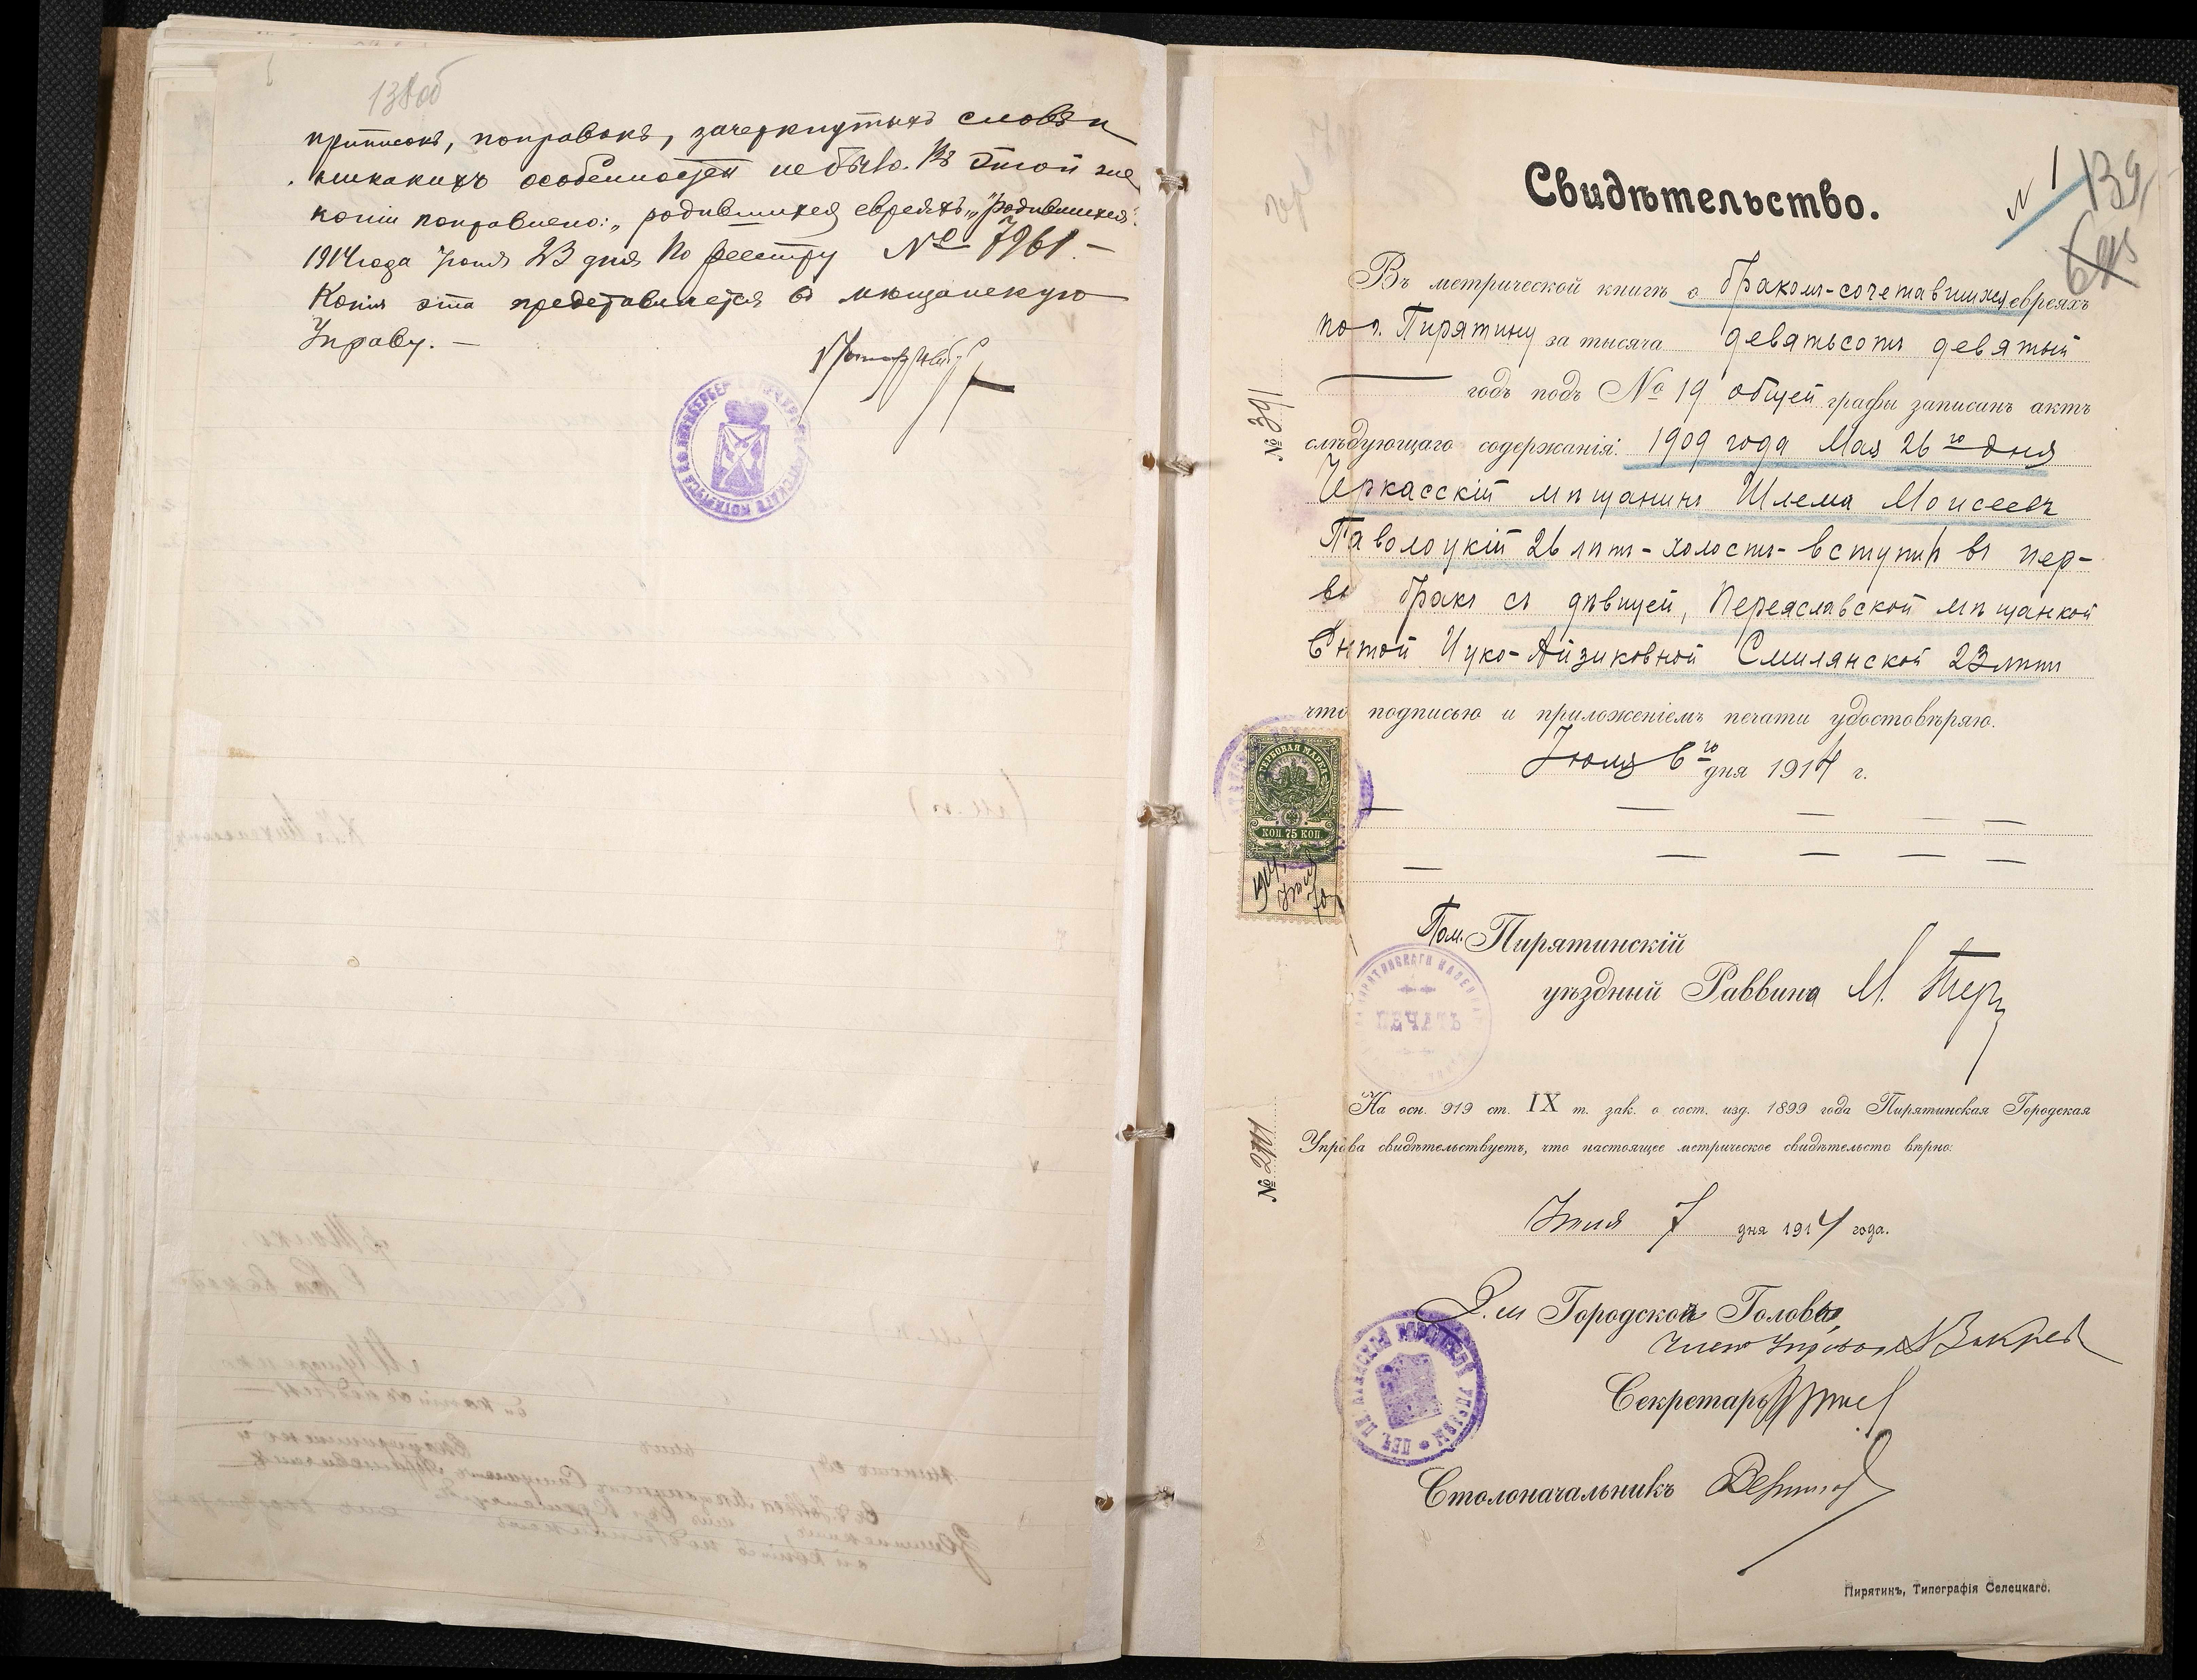 138об
приписокъ, поправокъ, зачеркнутыхъ словъ и
никакихъ особенностей не было. Въ этой же
копіи поправлено: „родившихся евреяхъ", „родившихся".
1914 года Іюня 23 дня По реестру № 7961. —
Копія эта представляется въ мѣщанскую
Управу. —
Свидѣтельство.
N 1
139
Въ метрической книгѣ о бракомъ-сочетавшихся евреяхъ
по г. Пирятину за тысяча девятьсотъ девятый
годъ подъ № 19 общей графы записанъ актъ
слѣдующаго содержанія: 1909 года Мая 26го дня
Черкасскій мѣщанинъ Шлема Моисеевъ
Паволоцкій 26 лѣтъ - холостъ - вступилъ въ пер-
вы бракъ съ дѣвицей, Переяславской мѣщанкой
Ентой Ицко-Айзиковной Смилянской 23 лѣтъ
что подписью и приложеніемъ печати удостовѣряю.
Іюля 6го дня 1914 г.
№ 391
ГЕРБОВАЯ МАРКА
КОП. 75 КОП.
Пом. Пирятинскій
уѣздный Раввина М.
ПЕЧАТЬ
На осн. 919 ст. IX т. зак. о сост. изд. 1899 года Пирятинская Городская
Управа свидѣтельствуетъ, что настоящее метрическое свидѣтельсто вѣрно:
№ 2711
Іюля 7 дня 1914 года.
З. м Городской Головы,
Членъ Управы
Секретарь
Столоначальникъ
Пирятинъ, Типографія Селецкаго.